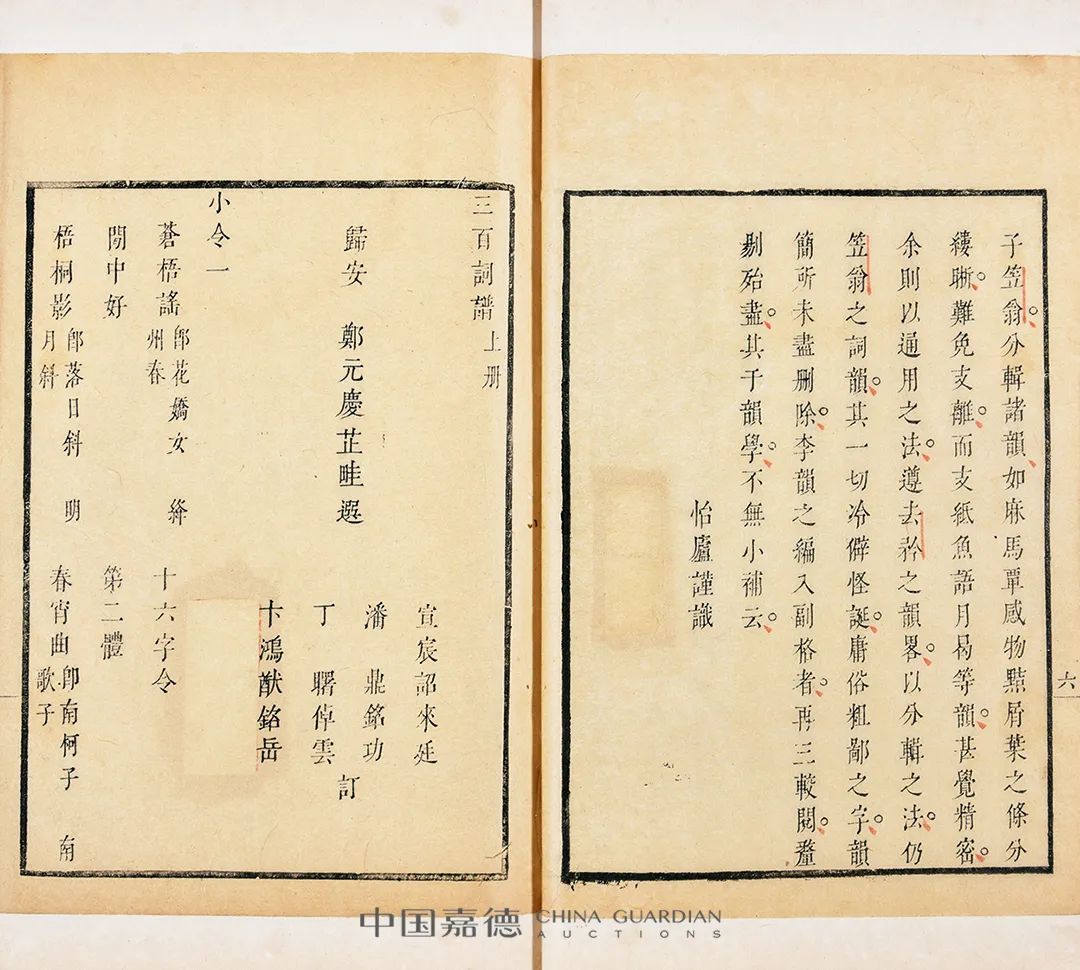 子笠翁分輯諸韻如麻馬覃感物點屑葉之條分
縷晰難免支離而支紙魚語月曷等韻甚覺精密
余則以通用之法遵去矜之韻畧以分輯之法仍
笠翁之詞韻其一切冷僻怪誕庸俗粗鄙之字韻
簡所未盡刪除李韻之編入副格者再三較閱釐
剔殆盡其于韻學不無小補云
怡廬謹識
六
三百詞譜上册
宣宸詔來廷
歸安 鄭元慶芷畦選 潘鼎銘功
丁曙倬雲 訂
卞鴻猷銘岳
小令一
蒼梧謠 卽花嬌女 絳州春 十六字令
閒中好 第二體
梧桐影 卽落日斜 明月斜 春宵曲 卽南柯子 南歌子
中国嘉德 CHINA GUARDIAN AUCTIONS